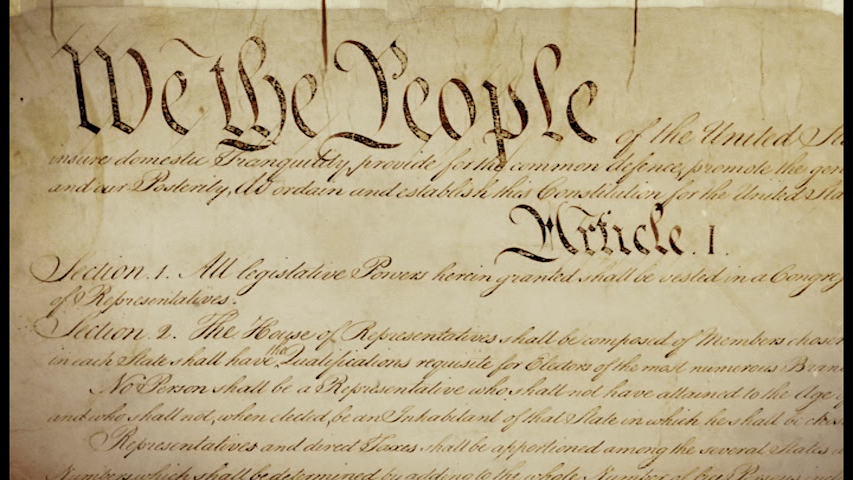 We the People of the United Sta
insure domestic Tranquility, provide for the common defence, promote the gen
and our Posterity, do ordain and establish this Constitution for the United Sta
Article. I.
Section. 1. All legislative Powers herein granted shall be vested in a Congre
of Representatives.
Section. 2. The House of Representatives shall be composed of Members chosen
in each State shall have the Qualifications requisite for Electors of the most numerous Bran
No Person shall be a Representative who shall not have attained to the Age
and who shall not, when elected, be an Inhabitant of that State in which he shall be chos
Representatives and direct Taxes shall be apportioned among the several States
Numbers, which shall be determined by adding to the whole Number of free Persons, incl